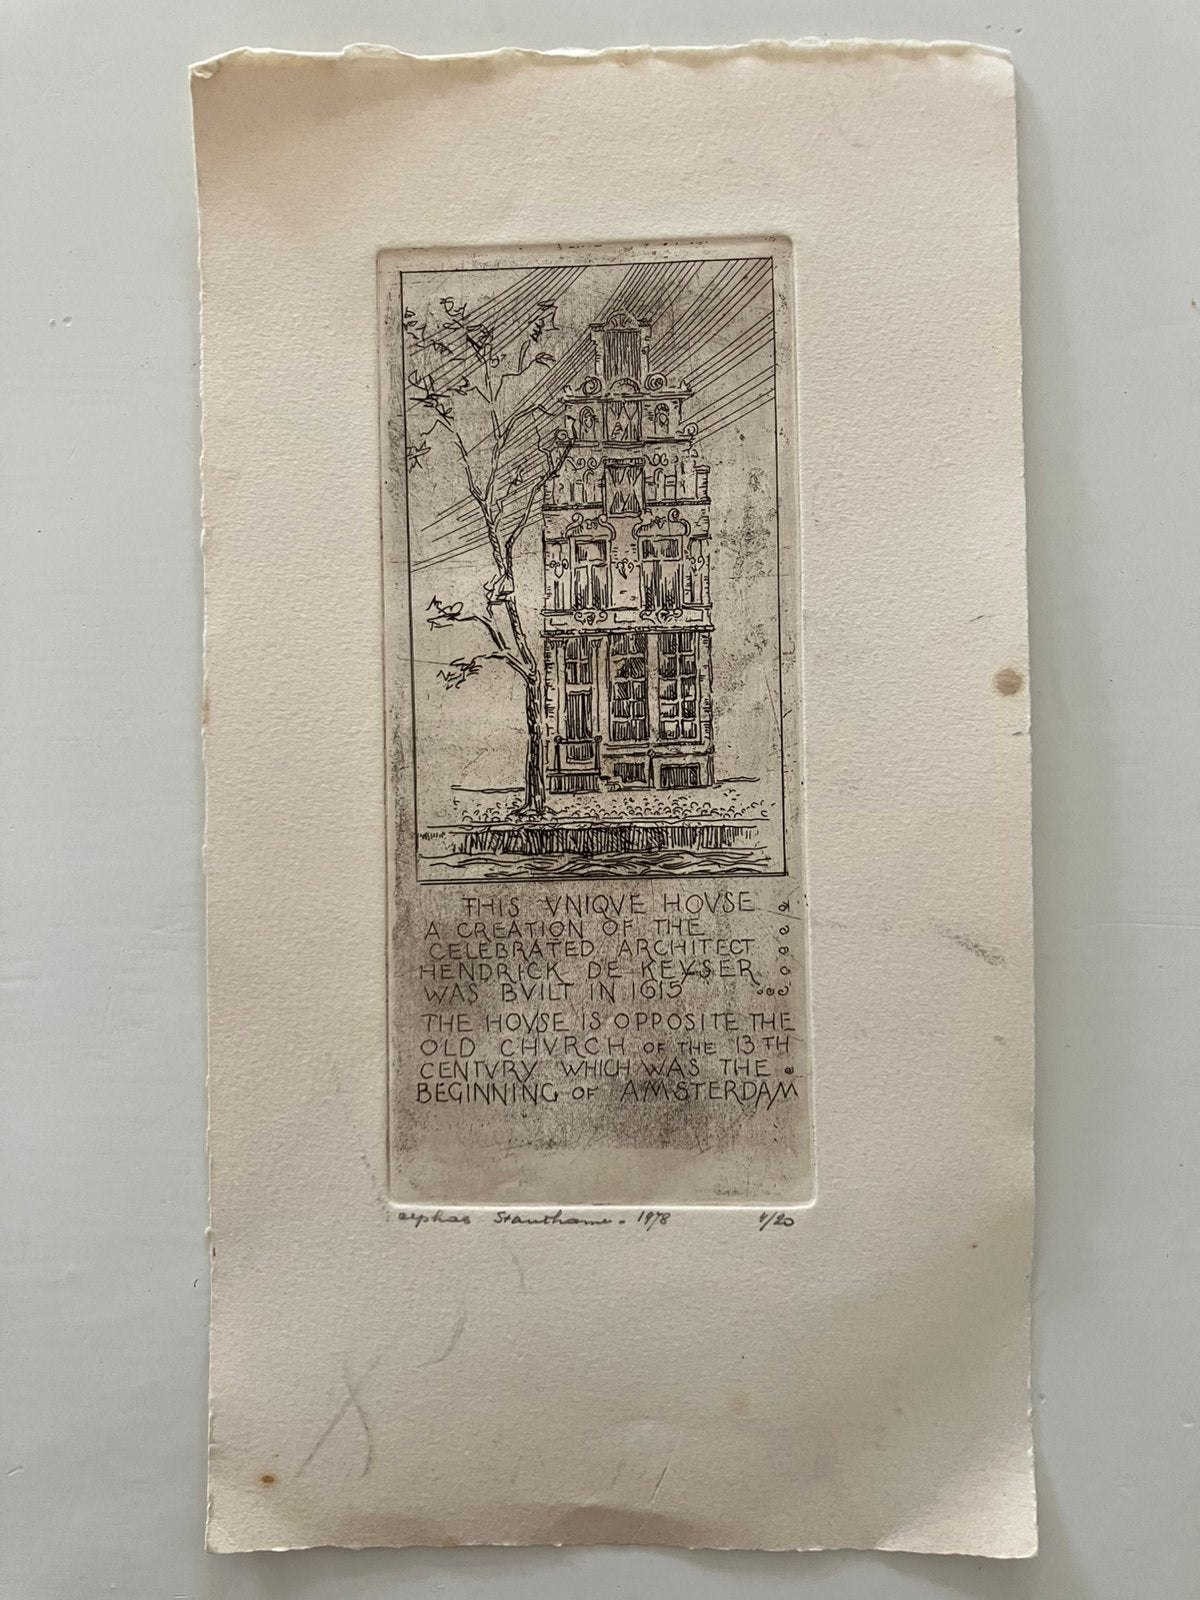 THIS VNIQVE HOVSE
A CREATION OF THE
CELEBRATED ARCHITECT
HENDRICK DE KEYSER
WAS BVILT IN 1615
THE HOVSE IS OPPOSITE THE
OLD CHVRCH OF THE 13TH
CENTVRY WHICH WAS THE
BEGINNING OF AMSTERDAM
1978 /20